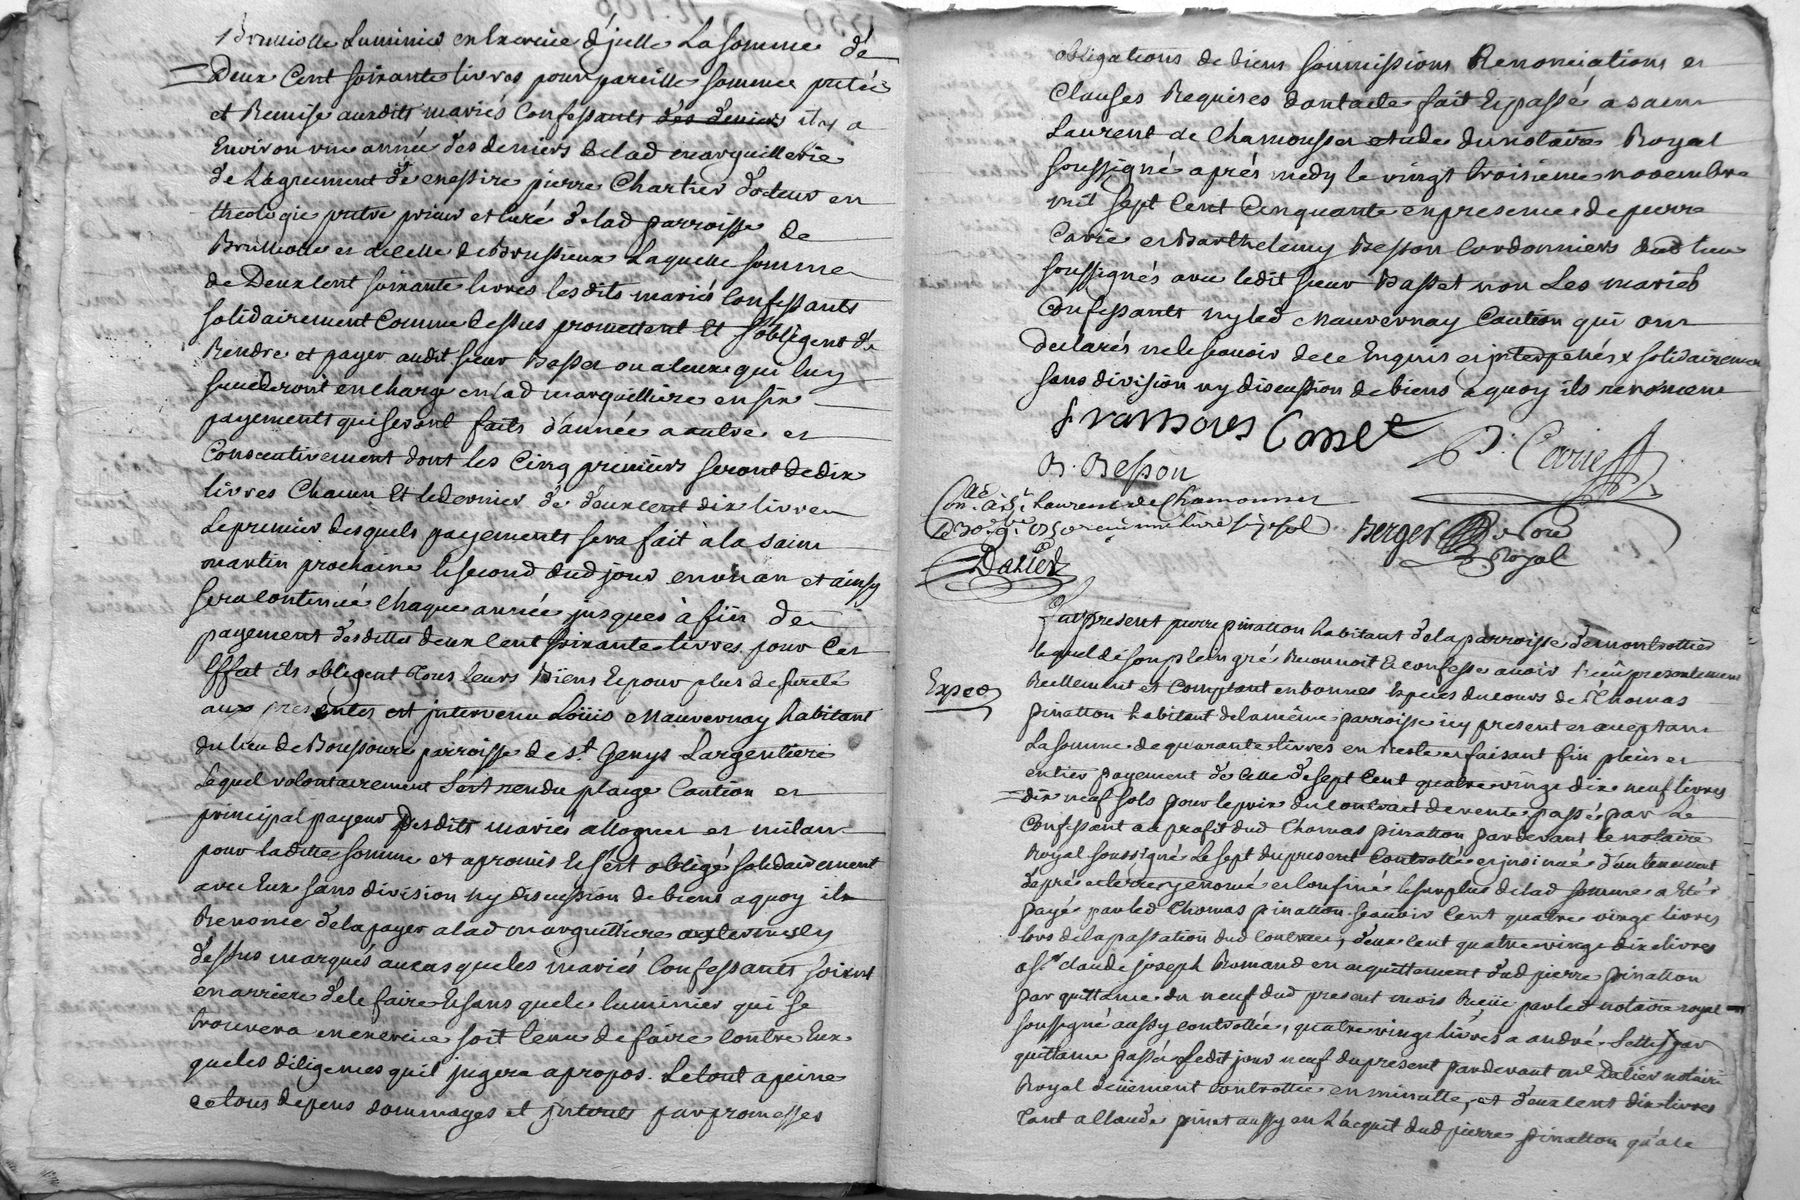 Brulliolle Luminier en Exercice d'jcelle La somme de
Deux Cent soixante livres pour pareille somme pretée
et Remise auxdits mariés Confessants des deniers il y a
Environ une année des deniers de lad marguillerie
de L'agrement de messire pierre Chartier docteur en
theologie pretre prieur et curé de lad parroisse de
Brulliolle et de celle de Brussieux Laquelle somme
de Deux Cent soixante livres lesdits mariés Confessants
solidairement Comme dessus promettent Et s'obligent de
Rendre et payer audit sieur Basset ou a ceux qui luy
succederont en charge en lad marguilliere en six
payements qui seront faits d'année a autre et
Consecutivement dont les Cinq premiers seront de dix
livres Chacun Et le dernier de deux cent dix livres
Le premier desquels payements sera fait à la saint
martin prochaine le second dud jour en un an et ainsy
sera continué chaque année jusques à fin de
payement desdittes deux cent soixante livres pour Cet
Effet ils obligent Tous leurs Biens Et pour plus de sureté
aux presentes est jntervenu Loüis Mauvernay habitant
du lieu de Boussoure parroisse de St Genys Largentiere
Lequel volontairement s'est rendu plaige Caution et
principal payeur desdits mariés allognet et milan
pour laditte somme et a promis Et s'est obligé solidairement
avec Eux sans division ny discussion de biens a quoy ils
Renonce de la payer a lad marguilliere aux termes cy
dessus marqués au cas que les mariés Confessants soient
en arriere de le faire Et sans que le luminier qui se
trouvera en exercice soit tenu de faire contre Eux
que les diligences qu'il jugera a propos. Le tout a peine
de tous depens dommages et jnterets par promesses
obligations de biens soumissions Renonciations et
Clauses Requises dont acte fait Et passé a saint
Laurent de Chamousset etude du notaire Royal
soussigné aprés midy le vingt troisieme novembre
mil sept Cent Cinquante en presence de pierre
Carié et Barthelemy Besson Cordonniers dud lieu
soussignés avec ledit sieur Basset non Les mariés
Confessants ny led Mauvernay Caution qui ont
declarés ne le scavoir de ce Enquis et jnterpellés x solidairement
sans division ny discussion de biens a quoy ils renoncent
B. Besson
P. Carie
Con. à St Laurent de Chamousset
Berger
Royal
Dalier
fut present pierre pinatton habitant de la parroisse de montrottier
lequel de son plein gré Reconnoit Et confesse avoir Receu presentement
Expeé
Reellement et Comptant en bonnes Especes du cours de Thomas
pinatton habitant de la même parroisse icy present et acceptant
La somme de quarante livres en reste et faisant fin plein et
entier payement de celle de sept cent quatre vingt dix neuf livres
dix neuf sols pour le prix du contract de vente passé par Le
Confessant au profit dud Thomas pinatton par devant le notaire
Royal soussigné Le sept du present Controllé et jnsinué d'un tenement
de pré et terre y enomé et Confiné le surplus de lad somme a Eté
payé par led Thomas pinatton scavoir Cent quatre vingt livres
lors de la passation dud contract, deux cent quatre vingt dix livres
a sr claude joseph Romand en acquittement dud pierre pinatton
par quittance du neuf dud present mois Receüe par led notaire royal
soussigné aussy controllée, quatre vingt livres a andré par
quittance passée ledit jour neuf du present par devant me Dalier notaire
Royal deüement Controllée en minutte, et deux cent dix livres
tant a Claude pinet aussy en L'acquit dud pierre pinatton qu'a le